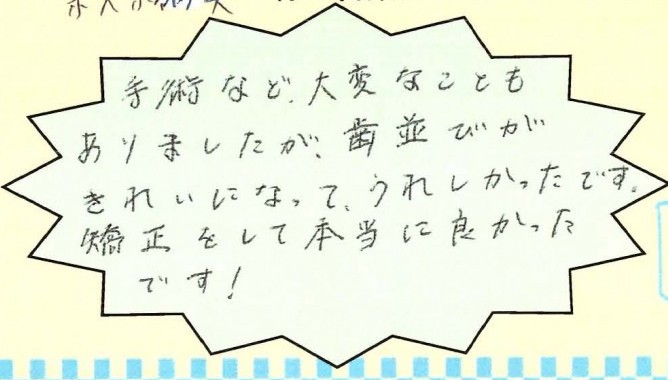 手術など、大変なことも
ありましたが、歯並びが
きれいになって、うれしかったです。
矯正をして本当に良かった
です!